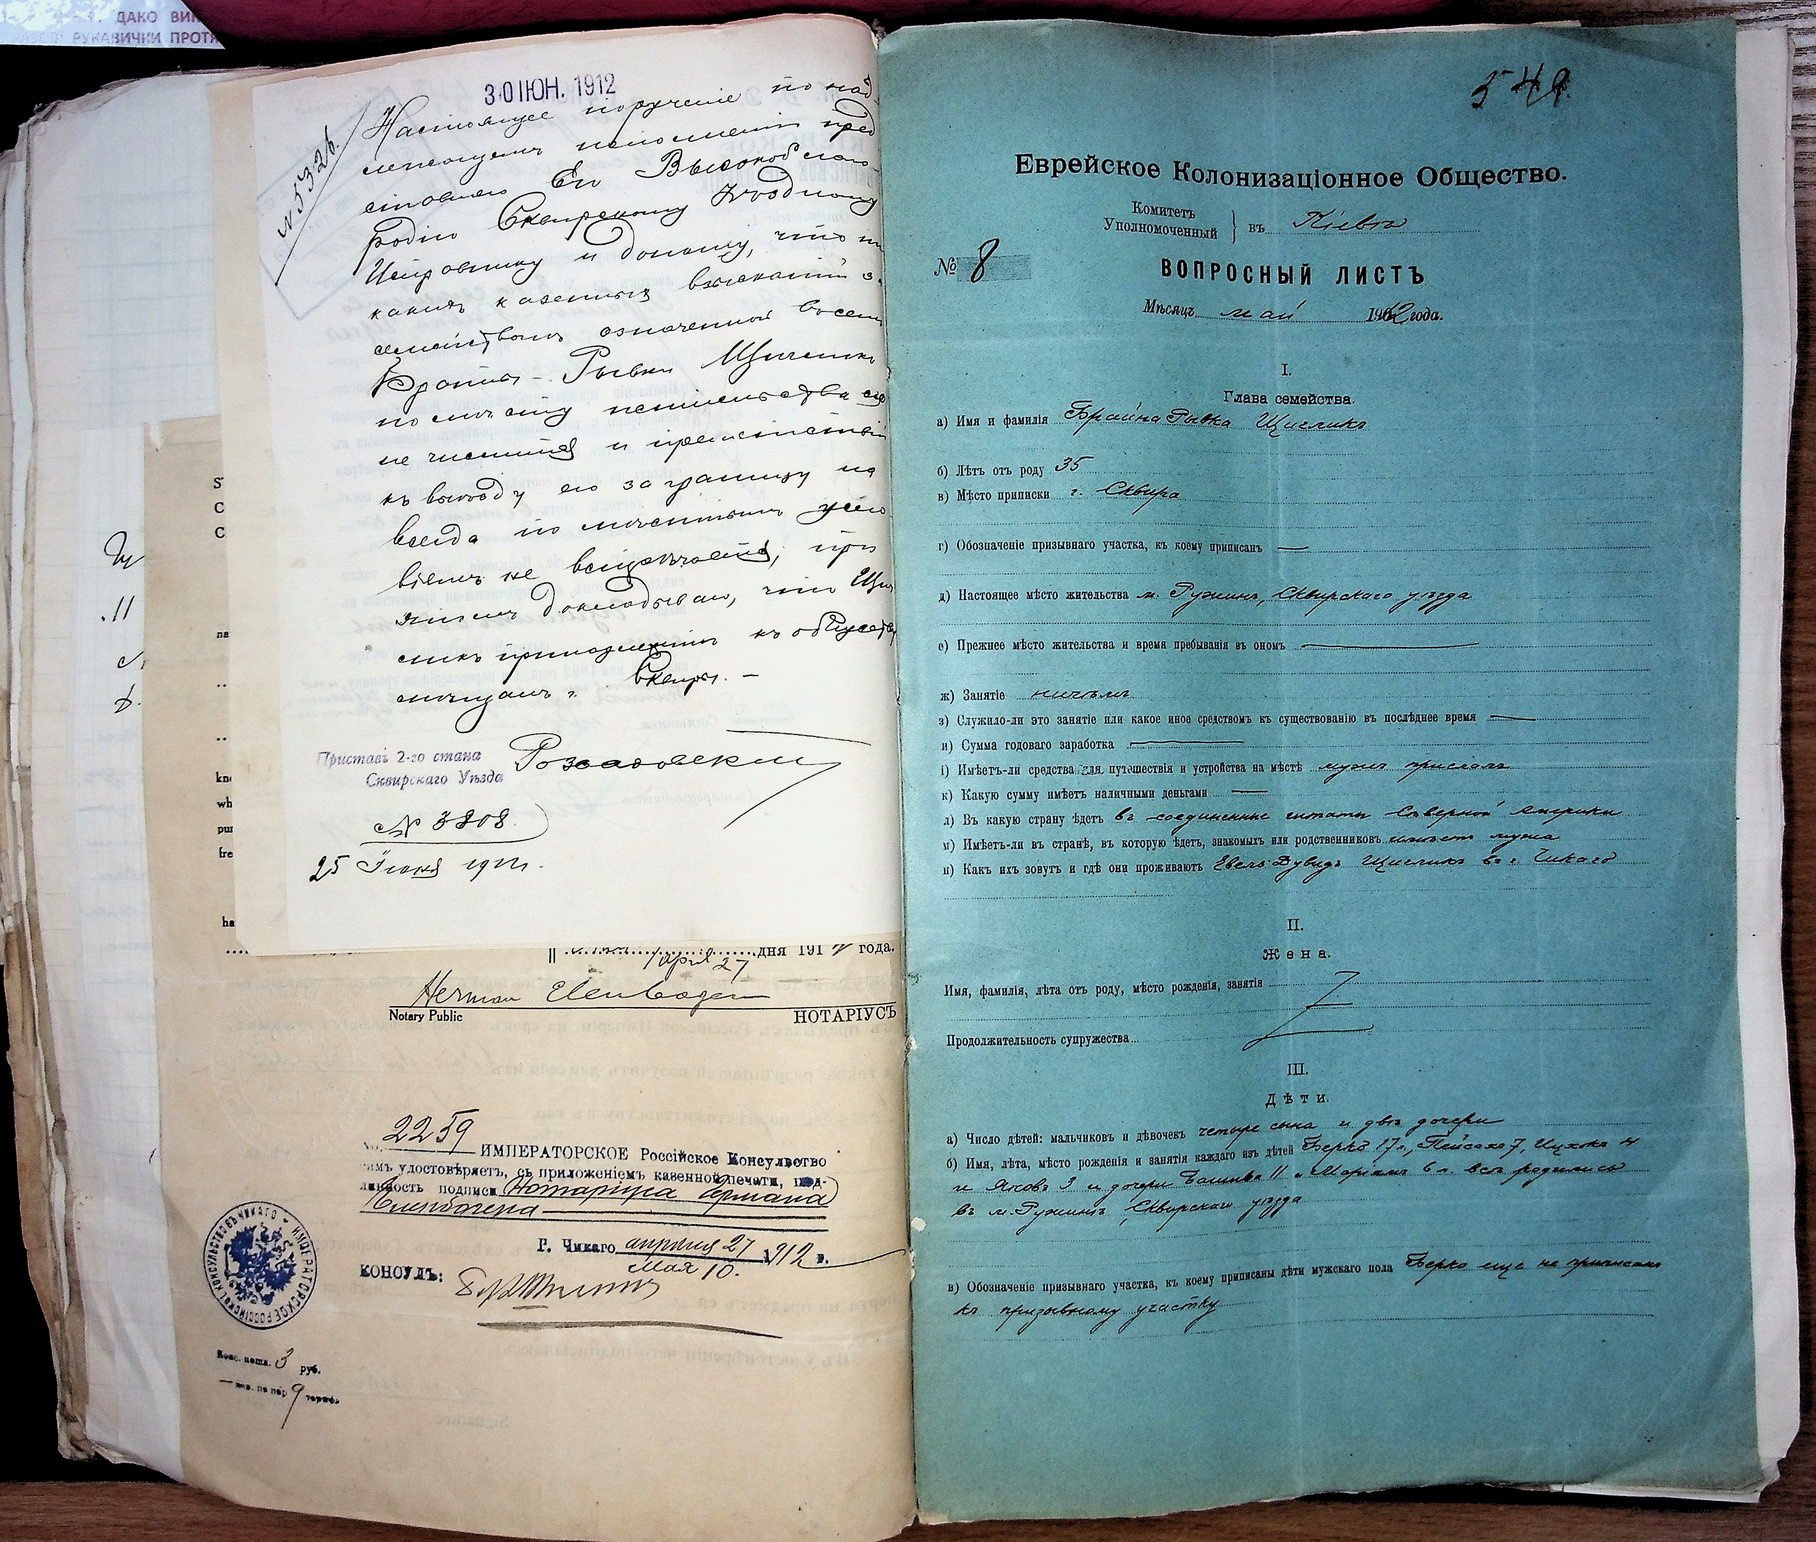 ДАКО ВИК
РУКАВИЧКИ ПРОТЯ
30 ІЮН. 1912
№ 5326.
Настоящее порученіе по над-
лежащемъ исполненіи пред
ставляю Его Высокобла
родію Сквирскому Уѣздному
Исправнику и доношу, что ни
какихъ казенныхъ взысканій з
семействомъ означенной
Рывки
по мѣсту жительства
не числится и препятствій
къ выѣзду его заграницу на
всегда по
не встрѣчается, при
чемъ докладываю, что
къ обществу
мѣщанъ г. Сквиры. —
Приставъ 2-го стана
Сквирскаго Уѣзда
№ 3808.
25 Іюня 1912 г.
дня 1912 года.
April 27
Herman Elenbogen
Notary Public НОТАРІУСЪ
2259
ИМПЕРАТОРСКОЕ Россійское Консульство
симъ удостовѣряетъ, съ приложеніемъ казенной печати, под-
линность подписи Нотаріуса Германа
Еленбогена
Г. Чикаго апрѣля 27 1912 г.
Мая 10.
КОНСУЛЪ:
3 руб.
9
549
Еврейское Колонизаціонное Общество.
Комитетъ
Уполномоченный } въ Кіевѣ
№ 8
ВОПРОСНЫЙ ЛИСТЪ
Мѣсяцъ май 1912 года.
I.
Глава семейства.
а) Имя и фамилія Брайна Рывка Щисликъ
б) Лѣтъ отъ роду 35
в) Мѣсто приписки г. Сквира
г) Обозначеніе призывнаго участка, къ коему приписанъ —
д) Настоящее мѣсто жительства м. Ружинъ, Сквирскаго уѣзда
е) Прежнее мѣсто жительства и время пребыванія въ ономъ —
ж) Занятіе ничѣмъ
з) Служило-ли это занятіе или какое иное средствомъ къ существованію въ послѣднее время —
и) Сумма годоваго заработка —
і) Имѣетъ-ли средства для путешествія и устройства на мѣстѣ мужъ прислалъ
к) Какую сумму имѣетъ наличными деньгами —
л) Въ какую страну ѣдетъ въ соединенные штаты Сѣверной Америки
м) Имѣетъ-ли въ странѣ, въ которую ѣдетъ, знакомыхъ или родственниковъ имѣетъ мужа
н) Какъ ихъ зовутъ и гдѣ они проживаютъ Евель Дувидъ Щисликъ въ г. Чикаго
II.
Жена.
Имя, фамилія, лѣта отъ роду, мѣсто рожденія, занятія
Продолжительность супружества
III.
Дѣти.
а) Число дѣтей: мальчиковъ и дѣвочекъ четыре сына и двѣ дочери
б) Имя, лѣта, мѣсто рожденія и занятія каждаго изъ дѣтей Берко 17 л., Пейсахъ 7, Ицхокъ 4
и Яковъ 3 и дочери 11 и Маріамъ 6 л. всѣ родились
въ м. Ружинѣ, Сквирскаго уѣзда
в) Обозначеніе призывнаго участка, къ коему приписаны дѣти мужскаго пола Берко еще не приписанъ
къ призывному участку